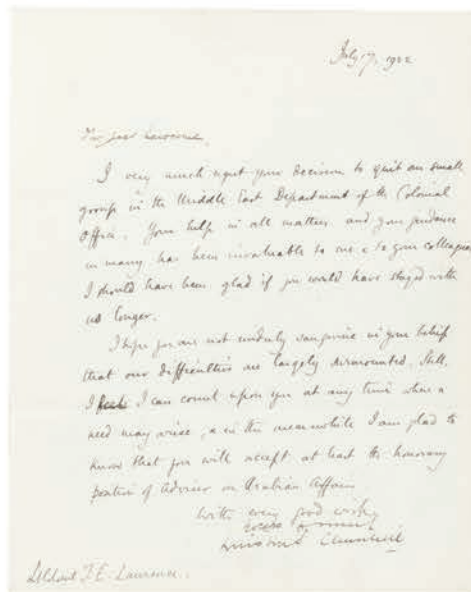 July 17, 1922
My dear Lawrence,
I very much regret your decision to quit our small
group in the Middle East Department of the Colonial
Office. Your help in all matters and your guidance
in many has been invaluable to me & to your colleagues
I should have been glad if you would have stayed with
us longer.
I hope you are not unduly sanguine in your belief
that our difficulties are largely surmounted. Still,
I feel I can count upon you at any time when a
need may arise, & in the meanwhile I am glad to
know that you will accept at least the honorary
position of Adviser on Arabian Affairs
With every good wish,
Yours
Winston S. Churchill
T. E. Lawrence.